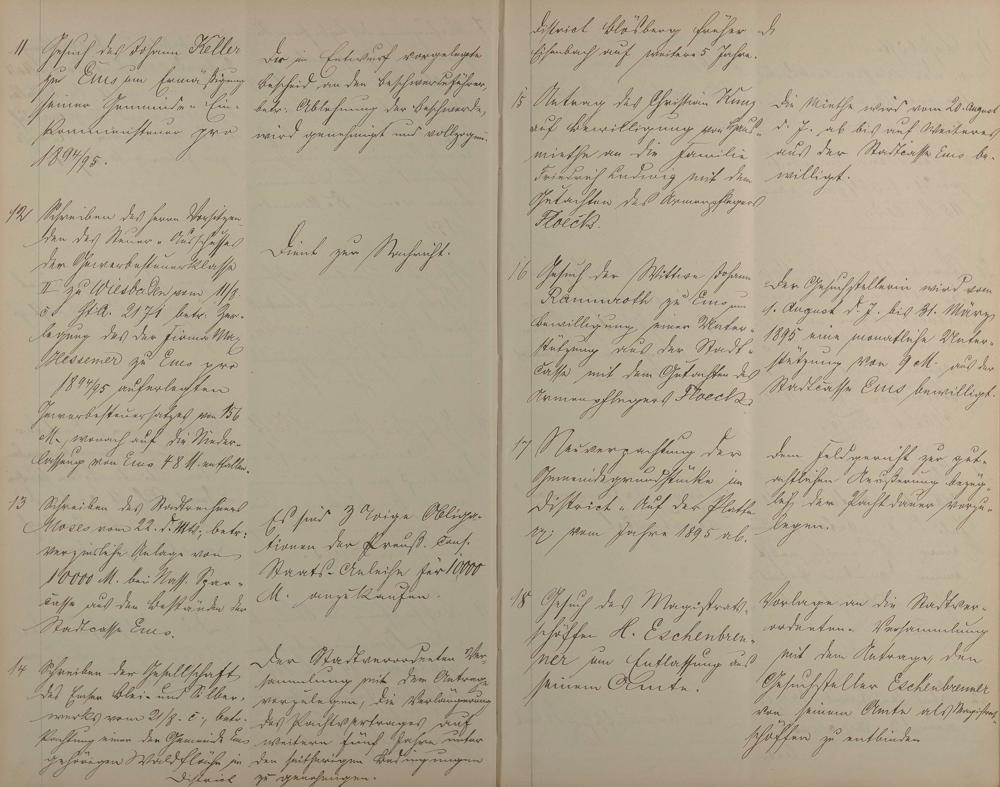 11 Gesuch des Johann Keller
zu Ems um Ermäßigung
seiner Gemeinde-Ein-
kommensteuer pro
1894/95.
Der im Entwurf vorgelegte
Bescheid an den Beschwerdeführer,
betr. Ablehnung der Beschwerde,
wird genehmigt und vollzogen.
12 Schreiben des Herrn Vorsitzen-
den des Steuer-Ausschusses
der Gewerbesteuerklasse
II zu Wiesbaden vom 11/8.
cr. 2171 betr. Zer-
legung des der Firma
Messemer zu Ems pro
1894/95 auferlegten
Gewerbesteuersatzes von 156
M., wonach auf die Nieder-
lassung von Ems 48 M. entfallen.
Dient zur Nachricht.
13 Schreiben des Stadtrechners
Moses vom 22. d. Mts., betr.
verzinsliche Anlage von
10000 M. bei Nass. Spar-
casse aus den Beständen der
Stadtcasse Ems.
Es sind 3%ige Obliga-
tionen der Preuß. Cons.
Staats-Anleihe für 10,000
M. anzukaufen.
14 Schreiben der Gesellschaft
des Emser Blei- und Silber-
werks vom 21/8. c., betr.
Pachtung einer der Gemeinde Ems
gehörigen Waldfläche im
District
Der Stadtverordneten Ver-
sammlung mit dem Antrag
vorzulegen, die Verlängerung
des Pachtvertrages auf
weitere fünf Jahre unter
den seitherigen Bedingungen
zu genehmigen.
District Klösberg früher
Eisenbach auf weitere 5 Jahre.
15 Antrag des Christian Kunz
auf Bewilligung von Haus-
miethe an die Familie
Friedrich Ludwig mit dem
Gutachten des Armenpflegers
Floeck.
Die Miethe wird vom 20. August
d. J. ab bis auf Weiteres
aus der Stadtcasse Ems be-
willigt.
16 Gesuch der Wittwe Johann
Rammroth zu Ems um
Bewilligung einer Unter-
stützung aus der Stadt-
casse mit dem Gutachten des
Armenpflegers Floeck.
Der Gesuchstellerin wird vom
1. August d. J. bis 31. März
1895 eine monatliche Unter-
stützung von 9 M. aus der
Stadtcasse Ems bewilligt.
17 Neuverpachtung der
Gemeindegrundstücke im
District "Auf der Platte"
vom Jahre 1895 ab.
Dem Feldgericht zur gut-
achtlichen Aeußerung bezüg-
lich der Pachtdauer vorzu-
legen.
18 Gesuch des Magistrats-
schöffen H. Eschenbren-
ner um Entlassung aus
seinem Amte.
Vorlage an die Stadtver-
ordneten-Versammlung
mit dem Antrage, den
Gesuchsteller Eschenbrenner
von seinem Amte als Magistrats
schöffen zu entbinden